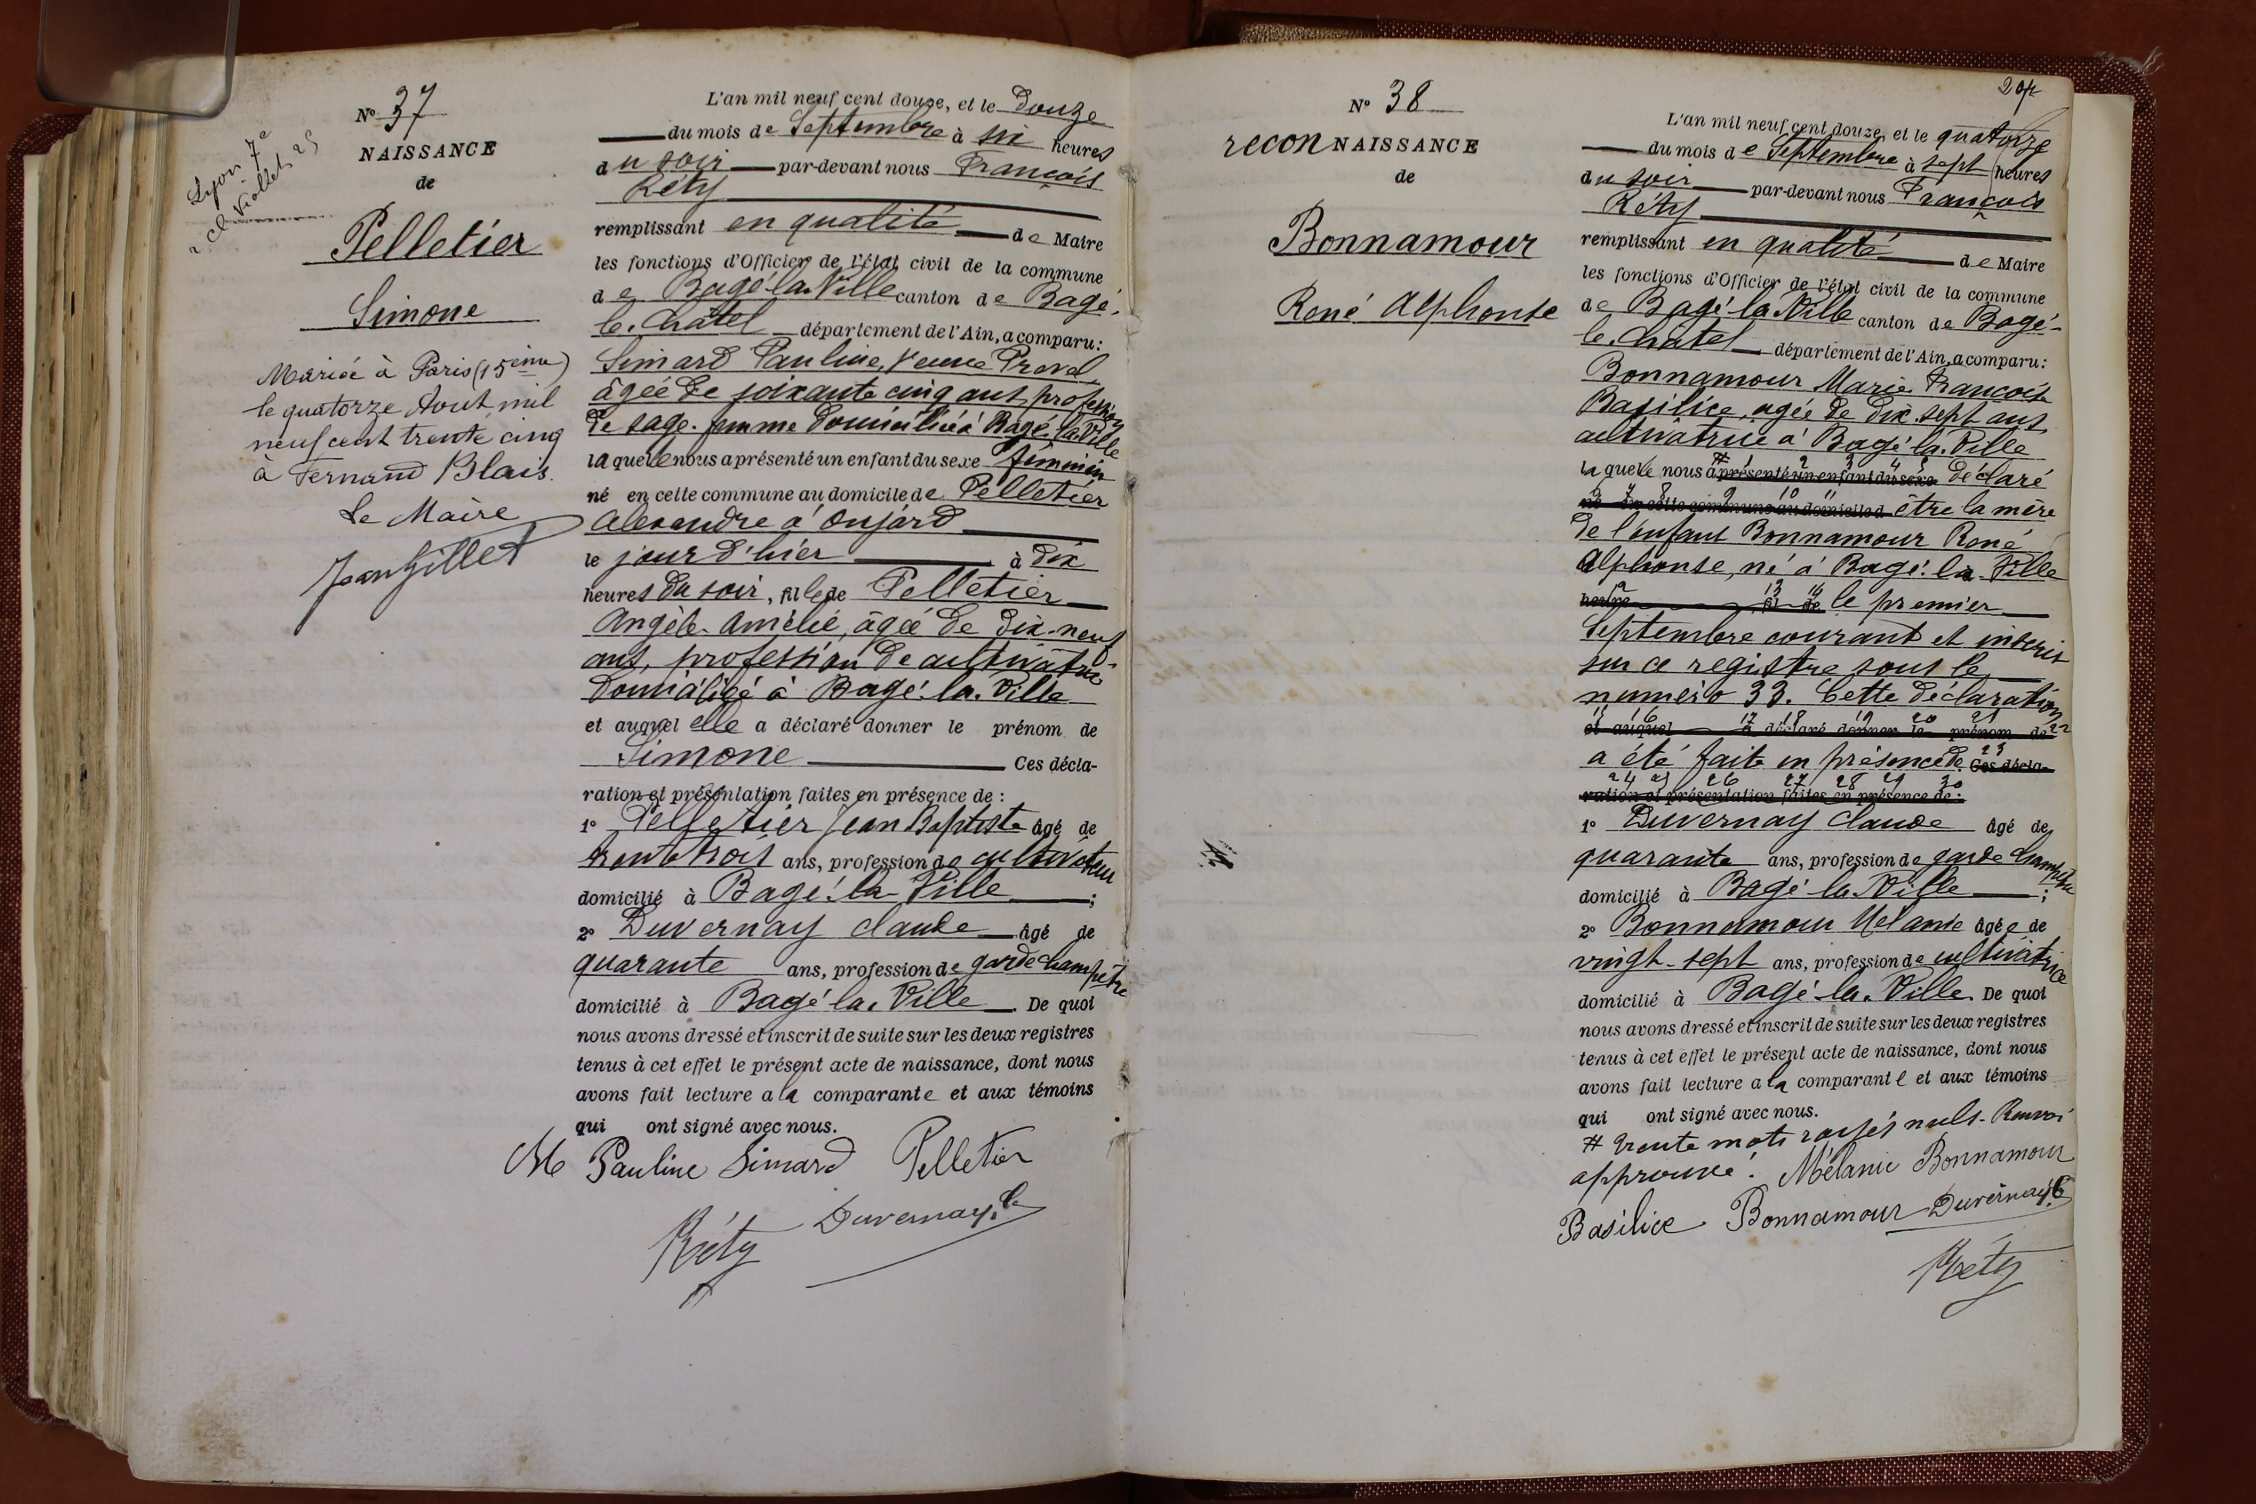 N° 37
NAISSANCE
de
Pelletier
Simone
Lyon 7e
Mariée à Paris (15ème)
le quatorze Août mil
neuf cent trente cinq
à Fernand Blais.
Le Maire
Jean Gillet
L'an mil neuf cent douze, et le douze
du mois de Septembre à six heures
du soir par-devant nous François
Réty
remplissant en qualité de Maire
les fonctions d'Officier de l'état civil de la commune
de Bagé-la-Ville canton de Bagé-
le-Châtel département de l'Ain, a comparu:
Simard Pauline, Veuve Prevel
âgée de soixante cinq ans profession
de sage-femme domiciliée à Bagé-la-Ville
laquelle nous a présenté un enfant du sexe féminin
né en cette commune au domicile de Pelletier
Alexandre à Onjard
le jour d'hier à dix
heures du soir, fille de Pelletier
Angèle-Amélie, âgée de dix-neuf
ans, profession de cultivatrice
domiciliée à Bagé-la-Ville
et auquel elle a déclaré donner le prénom de
Simone Ces décla-
ration et présentation faites en présence de :
1° Pelletier Jean Baptiste âgé de
trente trois ans, profession de cultivateur
domicilié à Bagé-la-Ville ;
2° Duvernay Claude âgé de
quarante ans, profession de garde champêtre
domicilié à Bagé-la-Ville. De quoi
nous avons dressé et inscrit de suite sur les deux registres
tenus à cet effet le présent acte de naissance, dont nous
avons fait lecture a la comparante et aux témoins
qui ont signé avec nous.
Pauline Simard Pelletier
Réty Duvernay C
N° 38
reconNAISSANCE
de
Bonnamour
René Alphonse
L'an mil neuf cent douze, et le quatorze
du mois de Septembre à sept heures
du soir par-devant nous François
Réty
remplissant en qualité de Maire
les fonctions d'Officier de l'état civil de la commune
de Bagé-la-Ville canton de Bagé-
le-Châtel département de l'Ain, a comparu:
Bonnamour Marie Françoise
Basilice, agée de dix-sept ans
cultivatrice à Bagé-la-Ville
laquelle nous a # présenté un enfant du sexe déclaré
né en cette commune au domicile d être la mère
de l'enfant Bonnamour René
Alphonse, né à Bagé-la-Ville
heure fil de le premier
Septembre courant et inscrit
sur ce registre sous le
numéro 33. Cette déclaration
et auquel a déclaré donner le prénom de
a été faite en présence de Ces décla-
ration et présentation faites en présence de :
1° Duvernay Claude âgé de
quarante ans, profession de garde champêtre
domicilié à Bagé-la-Ville ;
2° Bonnamour Mélanie âgée de
vingt-sept ans, profession de cultivatrice
domicilié à Bagé-la-Ville. De quoi
nous avons dressé et inscrit de suite sur les deux registres
tenus à cet effet le présent acte de naissance, dont nous
avons fait lecture a la comparante et aux témoins
qui ont signé avec nous.
# trente mots rayés nuls. Renvoi
approuvé. Mélanie Bonnamour
Basilice Bonnamour Duvernay C
Réty